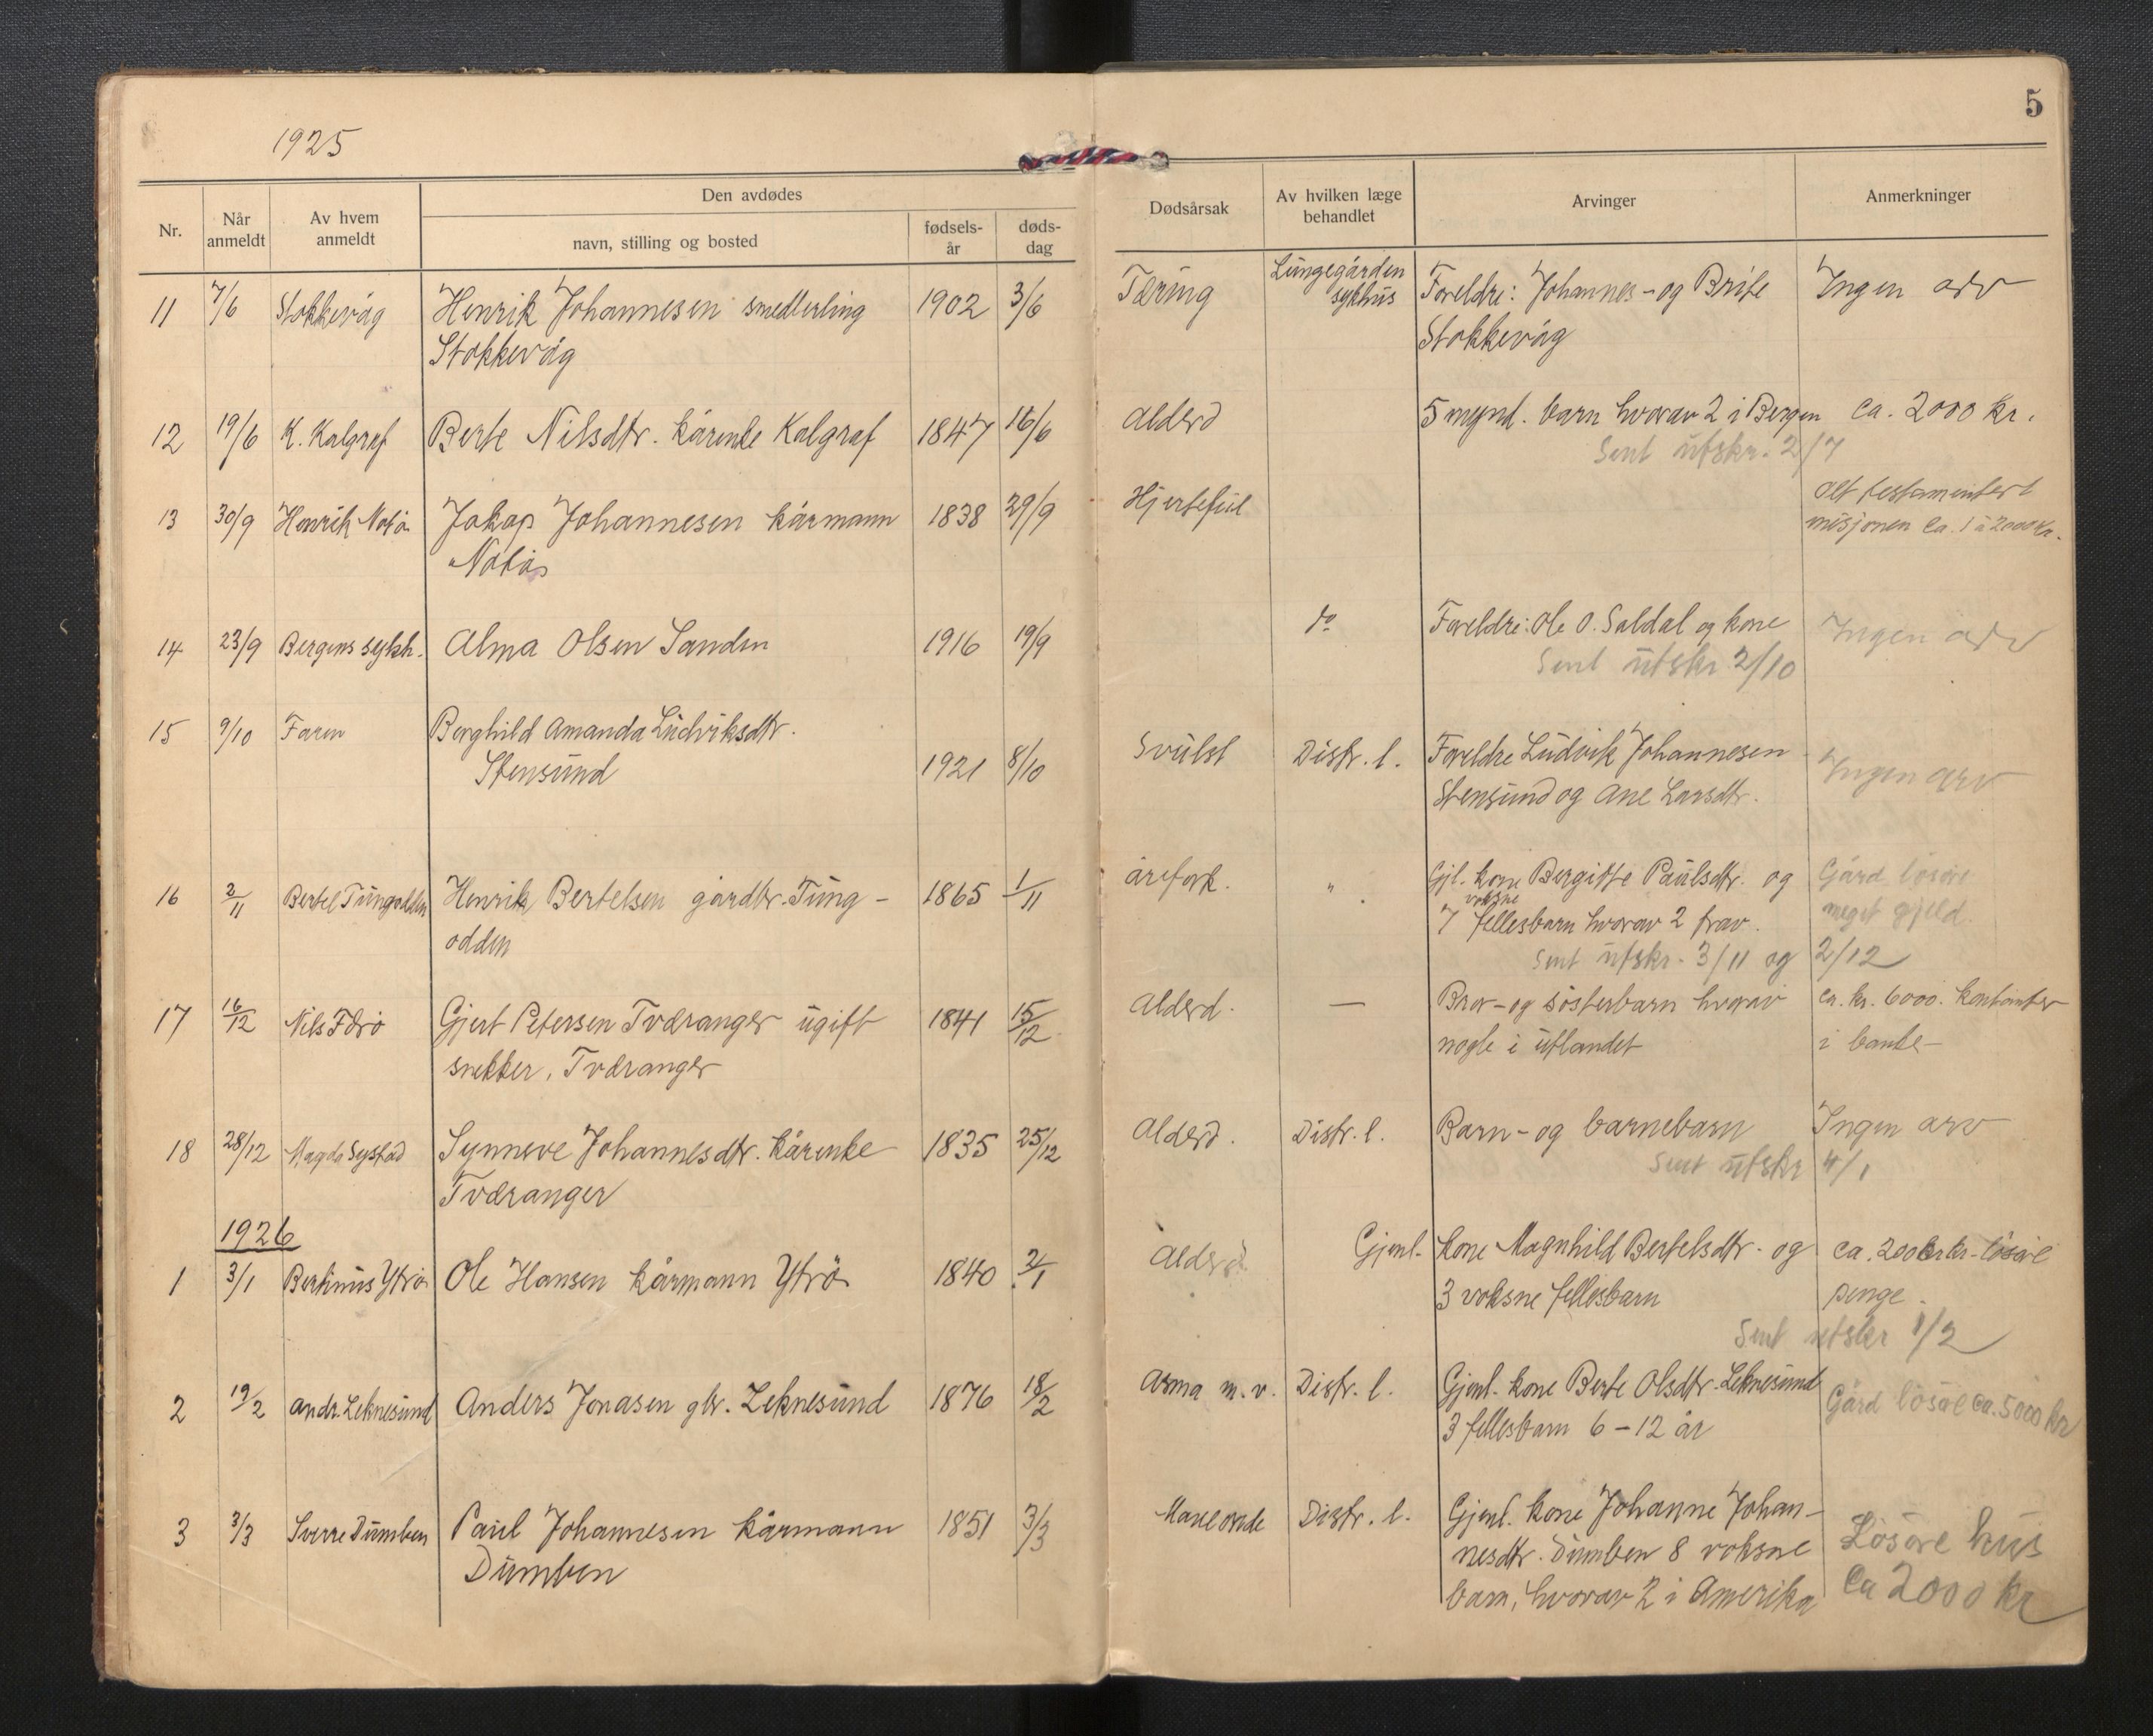 5
1925
Nr.
Når anmeldt
Av hvem anmeldt
Den avdødes
navn, stilling og bosted
fødsels-år
døds-dag
Dødsårsak
Av hvilken læge behandlet
Arvinger
Anmerkninger
11 7/6 Stokkevåg Henrik Johannesen smedlerling 1902 3/6 Tæring Lungegården sykhus Foreldre: Johannes - og Brite Ingen arv
Stokkevåg Stokkevåg
12 19/6 K. Kalgraf Berte Nilsdtr. kårenke Kalgraf 1847 16/6 Alderd 5 mynd. barn hvorav 2 i Bergen ca. 2000 kr.
Sent utskr. 2/7
13 30/9 Henrik Notø Jakop Johannesen kårmann 1838 29/9 Hjertefeil alt testamentert
Notø misjonen ca. 1 à 2000 kr.
14 23/9 Bergens sykh. Alma Olsen Sanden 1916 19/9 do Foreldre: Ole O. Saldal og kone Ingen arv
Sent utskr 2/10
15 9/10 Faren Borghild Amanda Ludviksdtr.
Stensund 1921 8/10 Svulst Distr. l. Foreldre Ludvik Johannesen Ingen arv
Stensund og Ane Larsdtr.
16 2/11 Bertel Tungodden Henrik Bertelsen gårdbr. Tung- 1865 1/11 årefork. " Gjl. kone Bergitte Paulsdtr. og Gård løsøre
odden 7 voksne fellesbarn hvorav 2 frav. meget gjeld.
Sent utskr. 3/11 og 2/12
17 16/12 Nils Færø Gjert Petersen Tværanger ugift 1841 15/12 Alderd. — Bror- og søsterbarn hvorav ca. kr. 6000. kontanter
snekker, Tværanger nogle i utlandet i banke-
18 28/12 Magda Systad Synneve Johannesdtr. kårenke 1835 25/12 Alderd. Distr. l. Barn- og barnebarn Ingen arv
Tværanger Sent utskr 4/1
1926
1 3/1 Bertinius Ytrø Ole Hansen kårmann Ytrø 1840 2/1 Alderd. Gjenl. kone Magnhild Bertelsdtr. og ca. 2000 kr - løsøre
3 voksne fellesbarn penge.
Sent utskr 1/2
2 19/2 Andr. Leknesund Anders Jonasen gbr. Leknesund 1876 18/2 Asma m. v. Distr. l. Gjenl. kone Berte Olsdtr. Leknesund Gård løsøre ca. 5000 kr
3 fellesbarn 6-12 år
3 3/3 Sverre Dumben Paul Johannesen kårmann 1851 3/3 Maveonde Distr. l. Gjenl. kone Johanne Johan- Løsøre hus
Dumben nesdtr. Dumben 8 voksne ca 2000 kr
barn, hvorav 2 i Amerika